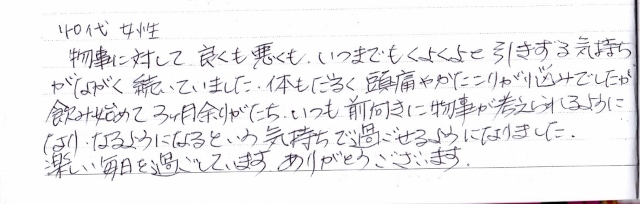 40代 女性
物事に対して 良くも悪くも、いつまでもくよくよと引きずる気持ち
がながく続いていました。体もだるく 頭痛やかたこりが悩みでしたが
飲み始めて 3ヶ月余りがたち、いつも前向きに物事が考えられるように
なり、なるようになるという気持ちで過ごせるようになりました。
楽しい毎日を過ごしています。ありがとうございます。